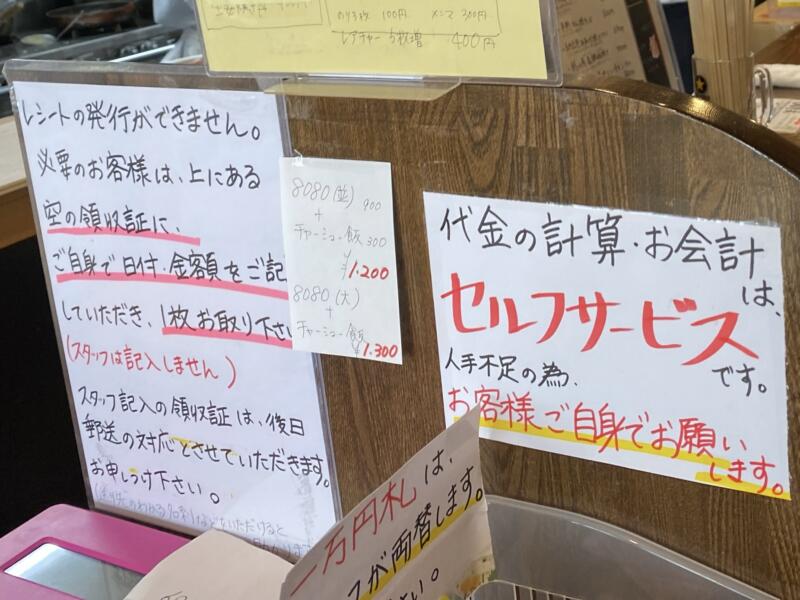 のり3枚 100円 メンマ 300円
レアチャー 5枚増 400円
レシートの発行ができません。
必要のお客様は、上にある
空の領収証に、
ご自身で日付・金額をご記
していただき、1枚お取り下さい
(スタッフは記入しません)
スタッフ記入の領収証は、後日
郵送の対応とさせていただきます。
お申しつけ下さい。
8080(並) 900
+
チャーシュー飯 300
¥1.200
8080(大)
+
チャーシュー飯
¥1.300
代金の計算・お会計
は、
セルフサービス
です。
人手不足の為、
お客様ご自身でお願い
します。
一万円札は、
フが両替します。
さい。